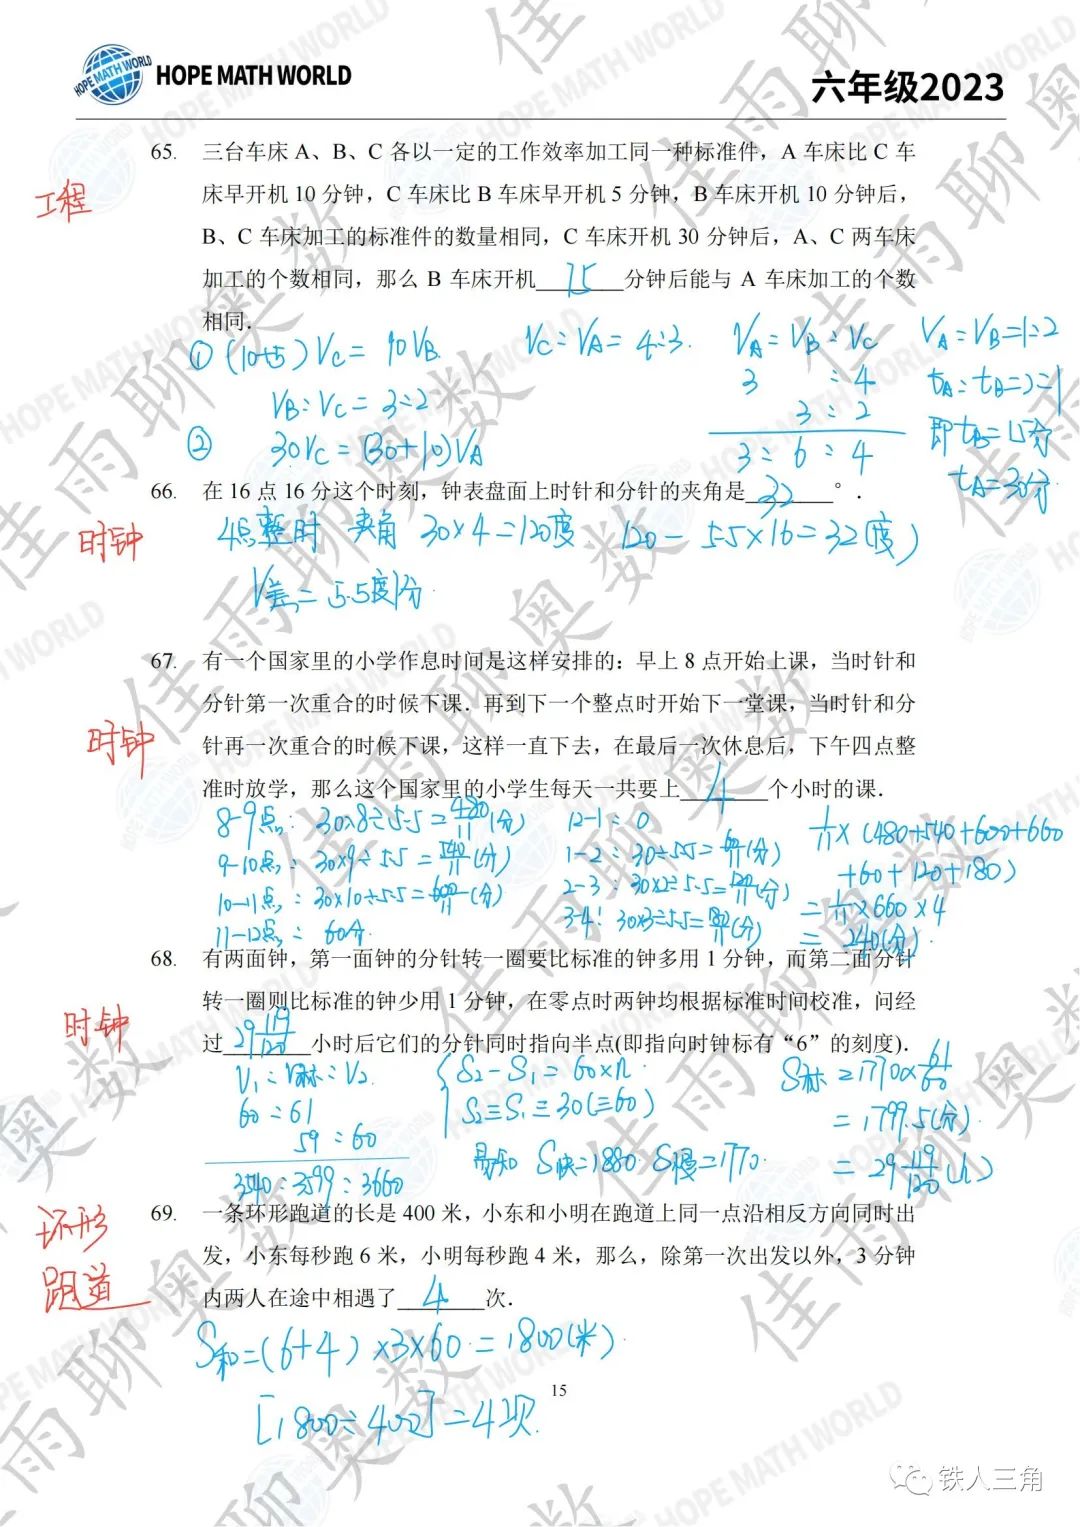 HOPE MATH WORLD
六年级2023
65. 三台车床 A、B、C 各以一定的工作效率加工同一种标准件，A 车床比 C 车
床早开机 10 分钟，C 车床比 B 车床早开机 5 分钟，B 车床开机 10 分钟后，
工程
B、C 车床加工的标准件的数量相同，C 车床开机 30 分钟后，A、C 两车床
加工的个数相同，那么 B 车床开机 15 分钟后能与 A 车床加工的个数
相同.
① (10+5) Vc = 10 VB
VB:Vc = 3:2
② 30Vc = (30+10)VA
Vc:VA = 4:3
VA:VB:Vc
3 : 4
3 : 2
3 : 6 : 4
VA:VB=1:2
tA:tB=2:1
即tB=15分
tA=30分
66. 在 16 点 16 分这个时刻，钟表盘面上时针和分针的夹角是 32 °.
时钟
4点整时 夹角 30×4=120度 120-5.5×16=32(度)
V差=5.5度/分
67. 有一个国家里的小学作息时间是这样安排的：早上 8 点开始上课，当时针和
分针第一次重合的时候下课．再到下一个整点时开始下一堂课，当时针和分
时钟
针再一次重合的时候下课，这样一直下去，在最后一次休息后，下午四点整
准时放学，那么这个国家里的小学生每天一共要上 4 个小时的课．
8-9点: 30×8÷5.5=480/11(分)
9-10点: 30×9÷5.5=540/11(分)
10-11点: 30×10÷5.5=600/11(分)
11-12点: 60分
12-1: 0
1-2: 30÷5.5=60/11(分)
2-3: 30×2÷5.5=120/11(分)
3-4: 30×3÷5.5=180/11(分)
1/11×(480+540+600+660
+60+120+180)
=1/11×660×4
=240(分).
68. 有两面钟，第一面钟的分针转一圈要比标准的钟多用 1 分钟，而第二面分针
转一圈则比标准的钟少用 1 分钟，在零点时两钟均根据标准时间校准，问经
时钟
过 29 119/120 小时后它们的分针同时指向半点(即指向时钟标有“6”的刻度).
V1:V标:V2
60:61
59:60
3540:3599:3660
S2-S1=60×n
S2≡S1≡30(≡60)
易知 S快=1830 S慢=1770
S标=1770×61/60
=1799.5(分)
=29 119/120(h)
69. 一条环形跑道的长是 400 米，小东和小明在跑道上同一点沿相反方向同时出
环形
跑道
发，小东每秒跑 6 米，小明每秒跑 4 米，那么，除第一次出发以外，3 分钟
内两人在途中相遇了 4 次．
S和=(6+4)×3×60=1800(米)
[1800÷400]=4次.
15
佳雨聊奥数
铁人三角